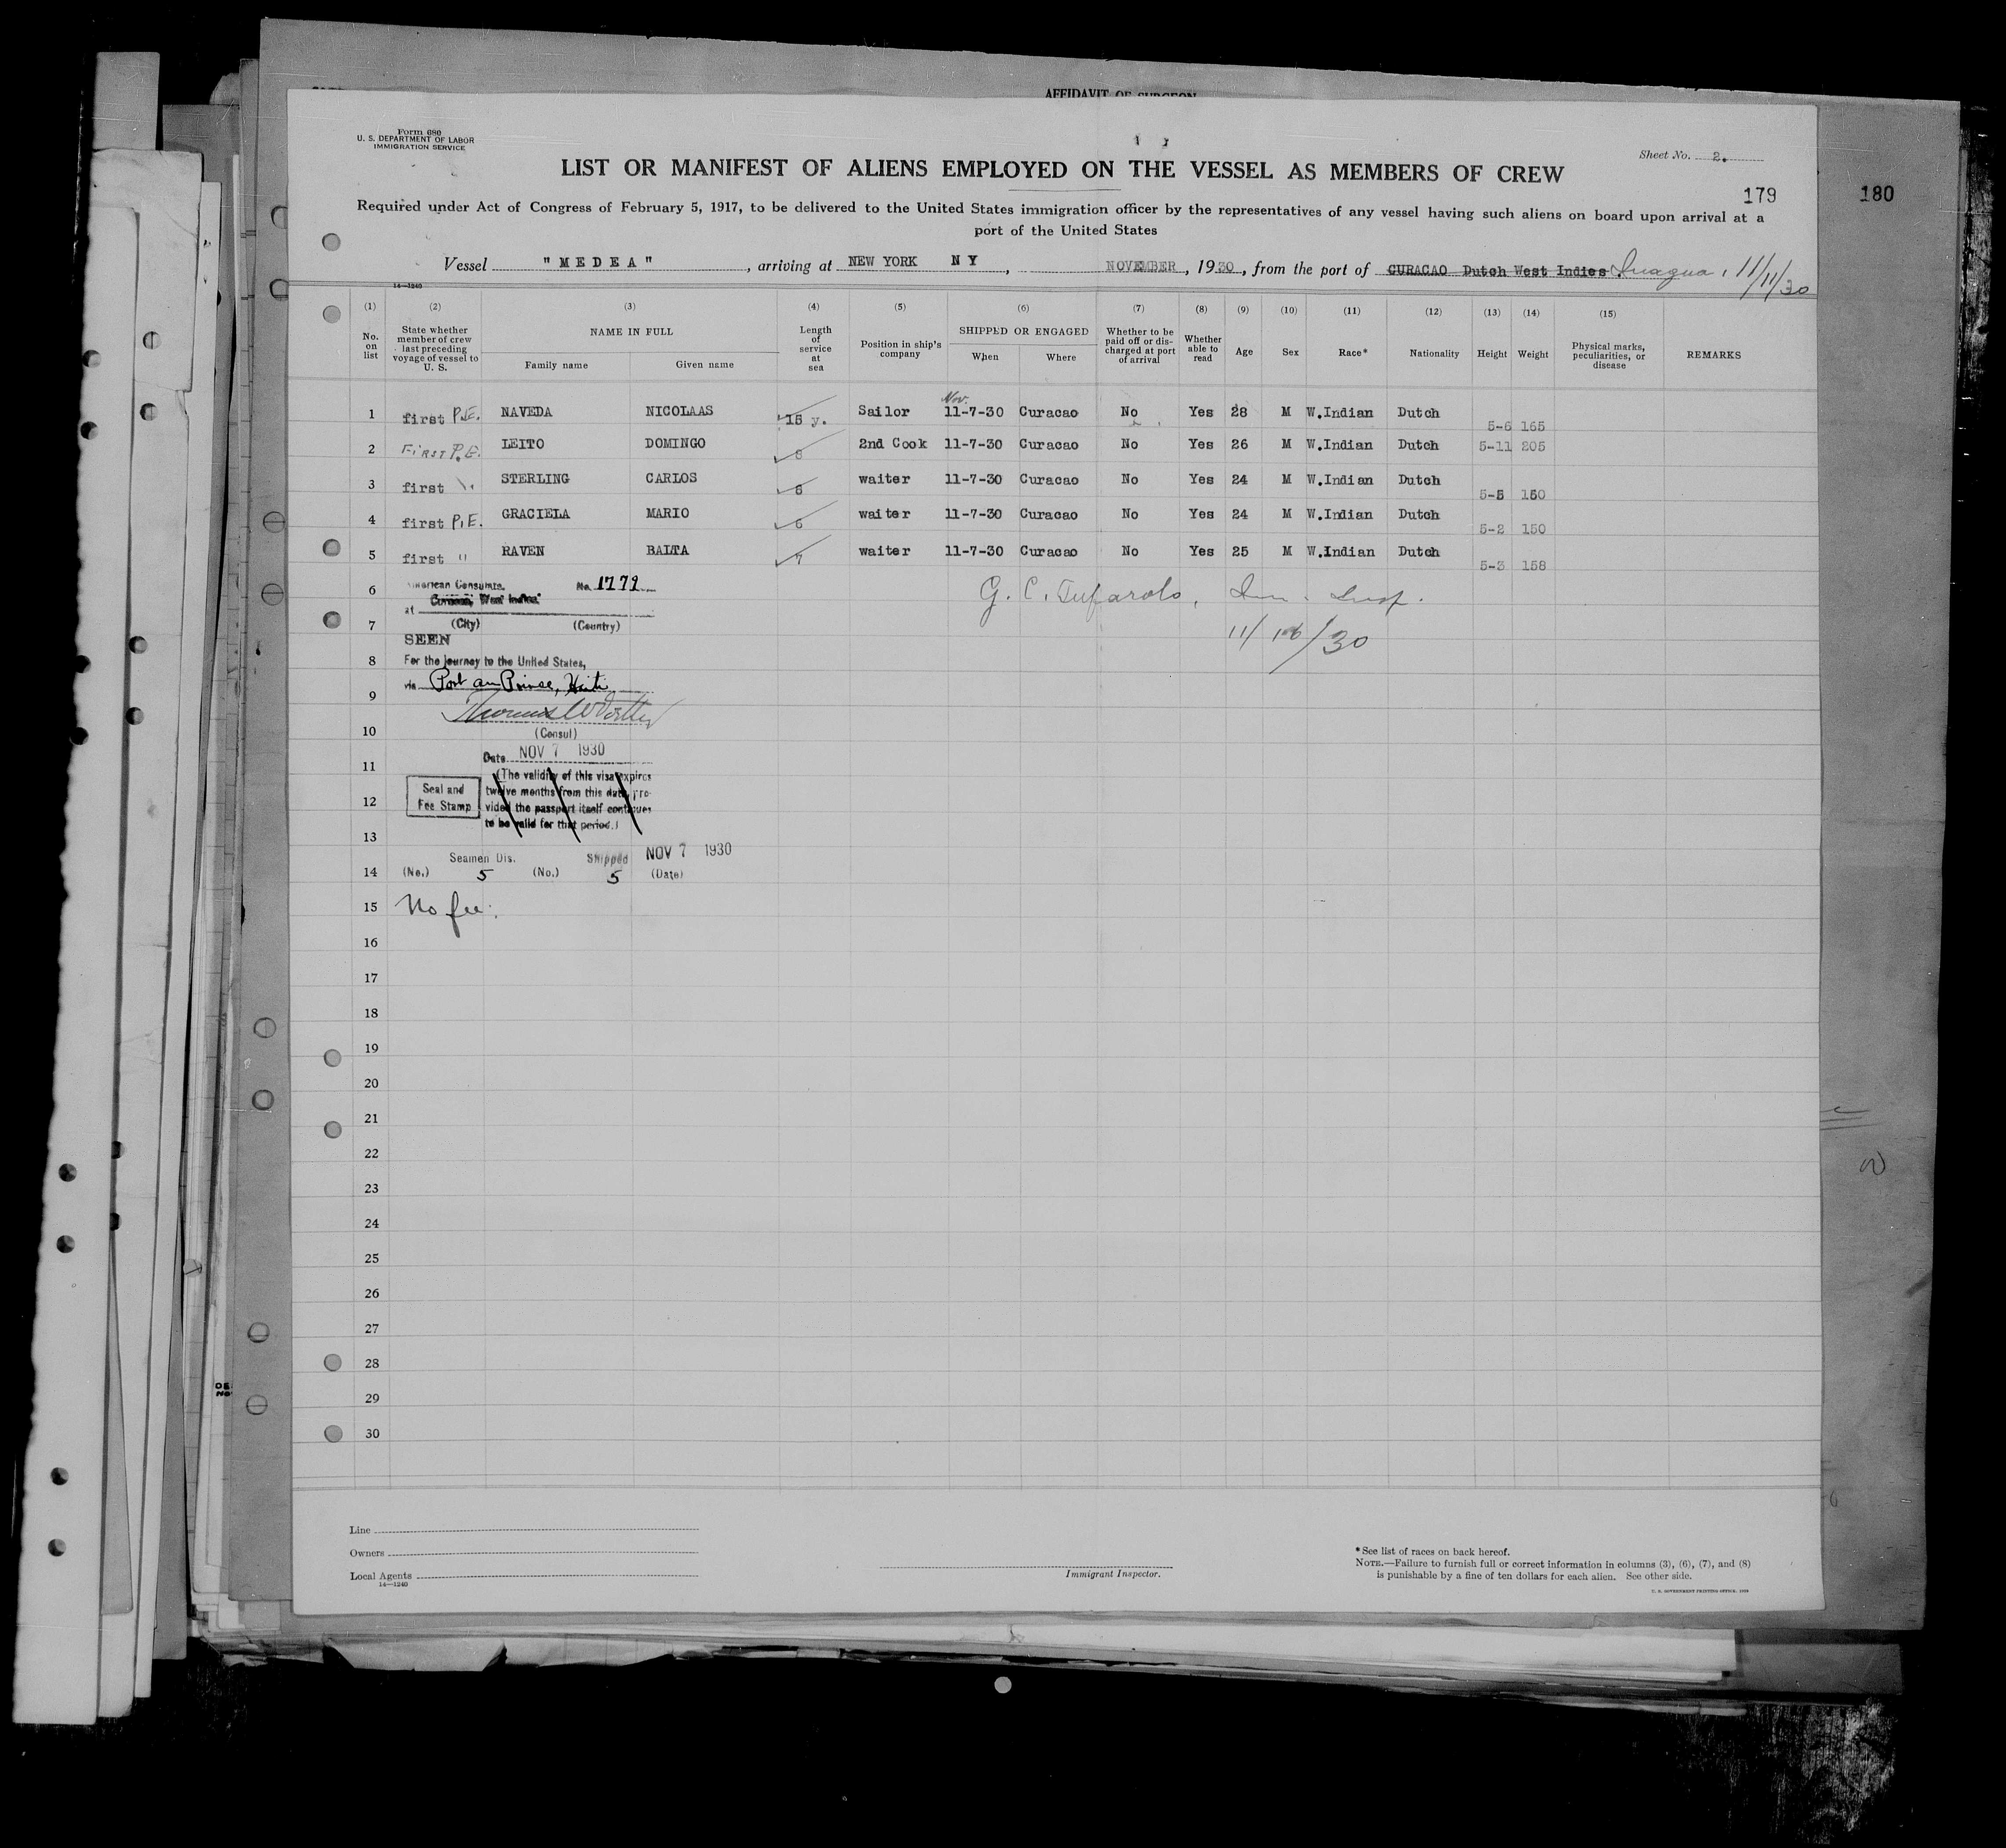 AFFIDAVIT OF SURGEON
Form 680
U. S. DEPARTMENT OF LABOR
IMMIGRATION SERVICE
Sheet No. 2.
LIST OR MANIFEST OF ALIENS EMPLOYED ON THE VESSEL AS MEMBERS OF CREW
179 180
Required under Act of Congress of February 5, 1917, to be delivered to the United States immigration officer by the representatives of any vessel having such aliens on board upon arrival at a
port of the United States
Vessel "MEDEA", arriving at NEW YORK NY, NOVEMBER, 1930, from the port of CURACAO Dutch West Indies Inagua, 11/11/30
14—1240
(1) (2) (3) (4) (5) (6) (7) (8) (9) (10) (11) (12) (13) (14) (15)
No. on list State whether member of crew last preceding voyage of vessel to U. S. NAME IN FULL Family name Given name Length of service at sea Position in ship's company SHIPPED OR ENGAGED When Where Whether to be paid off or discharged at port of arrival Whether able to read Age Sex Race* Nationality Height Weight Physical marks, peculiarities, or disease REMARKS
Nov.
1 first P.E. NAVEDA NICOLAAS 15 y. Sailor 11-7-30 Curacao No Yes 28 M W.Indian Dutch 5-6 165
2 FIRST P.E. LEITO DOMINGO 8 2nd Cook 11-7-30 Curacao No Yes 26 M W.Indian Dutch 5-11 205
3 first STERLING CARLOS waiter 11-7-30 Curacao No Yes 24 M W.Indian Dutch 5-5 150
4 first P.E. GRACIELA MARIO 6 waiter 11-7-30 Curacao No Yes 24 M W.Indian Dutch 5-2 150
5 first " RAVEN BALTA 7 waiter 11-7-30 Curacao No Yes 25 M W.Indian Dutch 5-3 158
6 American Consulate, No. 1779 G. C. Tufarolo, Im. Insp.
Curacao, West Indies
at
7 (City) (Country) 11/16/30
SEEN
8 For the journey to the United States,
via Port au Prince, Haiti
9
10 (Consul)
Date NOV 7 1930
11 (The validity of this visa expires
12 Seal and Fee Stamp twelve months from this date, pro-
vided the passport itself continues
to be valid for that period.)
13
Seamen Dis. Shipped NOV 7 1930
14 (No.) 5 (No.) 5 (Date)
15 No fee.
16
17
18
19
20
21
22
23
24
25
26
27
28
29
30
Line
Owners
Local Agents
14—1240
Immigrant Inspector.
* See list of races on back hereof.
NOTE.—Failure to furnish full or correct information in columns (3), (6), (7), and (8)
is punishable by a fine of ten dollars for each alien. See other side.
U. S. GOVERNMENT PRINTING OFFICE: 1929